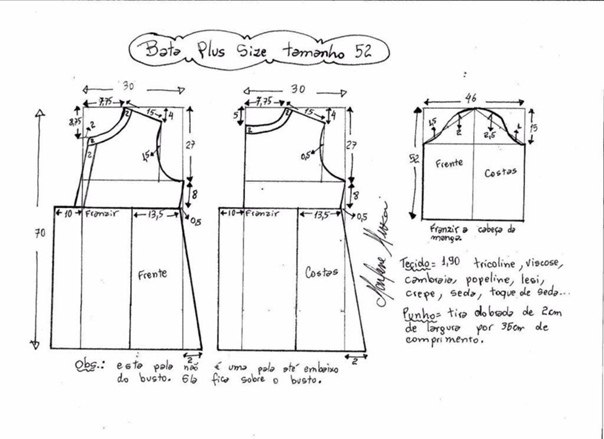 Bata Plus Size tamanho 52
30
7,75
15
4
8,75
2
2
2
2
1,5
27
8
10
Franzir
13,5
0,5
70
Frente
2
30
7,75
15
4
5
2
2
0,5
27
8
10
Franzir
13,5
0,5
Costas
2
46
1,5
2
2,5
1
15
52
Frente
Costas
Franzir a cabeça da
manga.
Marlene Mukai
Tecido= 1,90 tricoline, viscose,
cambraia, popeline, lesi,
crepe, seda, toque de seda...
Punho= tira dobrada de 2cm
de largura por 35cm de
comprimento.
Obs.: esta pala não é uma pala até embaixo
do busto. Ela fica sobre o busto.